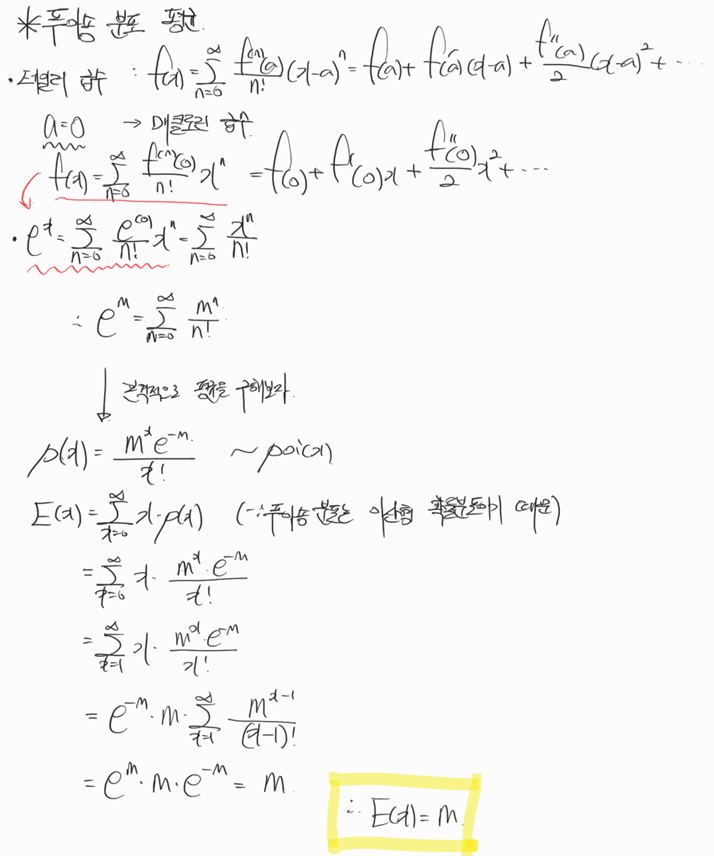 *푸아송 분포 평균.
· 테일러 급수 : f(x) = \sum_{n=0}^{∞} \frac{f^{(n)}(a)}{n!} (x-a)^n = f(a) + f'(a)(x-a) + \frac{f''(a)}{2} (x-a)^2 + ⋯
a=0 → 매클로린 급수.
f(x) = \sum_{n=0}^{∞} \frac{f^{(n)}(0)}{n!} x^n = f(0) + f'(0)x + \frac{f''(0)}{2} x^2 + ⋯
· e^x = \sum_{n=0}^{∞} \frac{e^{(0)}}{n!} x^n = \sum_{n=0}^{∞} \frac{x^n}{n!}
∴ e^m = \sum_{n=0}^{∞} \frac{m^n}{n!}
↓ 본격적으로 평균을 구해보자.
p(x) = \frac{m^x e^{-m}}{x!} ~ poi(x)
E(x) = \sum_{x=0}^{∞} x·p(x) (∵푸아송 분포는 이산형 확률분포이기 때문)
= \sum_{x=0}^{∞} x· \frac{m^x·e^{-m}}{x!}
= \sum_{x=1}^{∞} x· \frac{m^x·e^{-m}}{x!}
= e^{-m}·m· \sum_{x=1}^{∞} \frac{m^{x-1}}{(x-1)!}
= e^m·m·e^{-m} = m.
∴ E(x) = m.